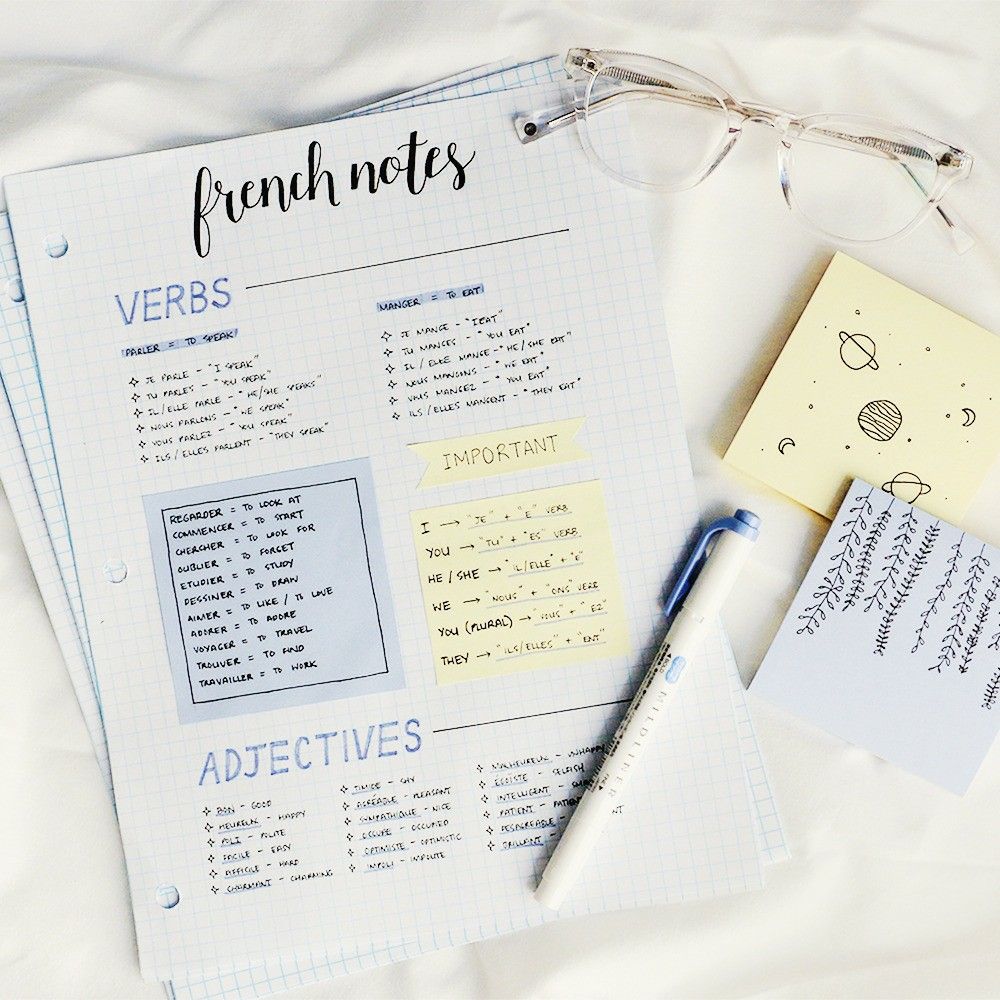 french notes
VERBS
PARLER = TO SPEAK
✧ JE PARLE - "I SPEAK"
✧ TU PARLES - "YOU SPEAK"
✧ IL/ELLE PARLE - "HE/SHE SPEAKS"
✧ NOUS PARLONS - "WE SPEAK"
✧ VOUS PARLEZ - "YOU SPEAK"
✧ ILS/ELLES PARLENT - "THEY SPEAK"
MANGER = TO EAT
✧ JE MANGE - "I EAT"
✧ TU MANGES - "YOU EAT"
✧ IL/ELLE MANGE - "HE/SHE EAT"
✧ NOUS MANGONS - "WE EAT"
✧ VOUS MANGEZ - "YOU EAT"
✧ ILS/ELLES MANGENT - "THEY EAT"
REGARDER = TO LOOK AT
COMMENCER = TO START
CHERCHER = TO LOOK FOR
OUBLIER = TO FORGET
ETUDIER = TO STUDY
DESSINER = TO DRAW
AIMER = TO LIKE / TO LOVE
ADORER = TO ADORE
VOYAGER = TO TRAVEL
TROUVER = TO FIND
TRAVAILLER = TO WORK
IMPORTANT
I → "JE" + "E" VERB
YOU → "TU" + "ES" VERB
HE/SHE → "IL/ELLE" + "E"
WE → "NOUS" + "ONS" VERB
YOU (PLURAL) → "VOUS" + "EZ"
THEY → "ILS/ELLES" + "ENT"
ADJECTIVES
✧ BON - GOOD
✧ HEUREUX - HAPPY
✧ POLI - POLITE
✧ FACILE - EASY
✧ DIFFICILE - HARD
✧ CHARMANT - CHARMING
✧ TIMIDE - SHY
✧ AGRÉABLE - PLEASANT
✧ SYMPATHIQUE - NICE
✧ OCCUPE - OCCUPIED
✧ OPTIMISTE - OPTIMISTIC
✧ IMPOLI - IMPOLITE
✧ MALHEUREUX - UNHAPPY
✧ ÉGOÏSTE - SELFISH
✧ INTELLIGENT -
✧ PATIENT -
✧ DESAGREABLE -
✧ BRILLIANT -
MILDLINER